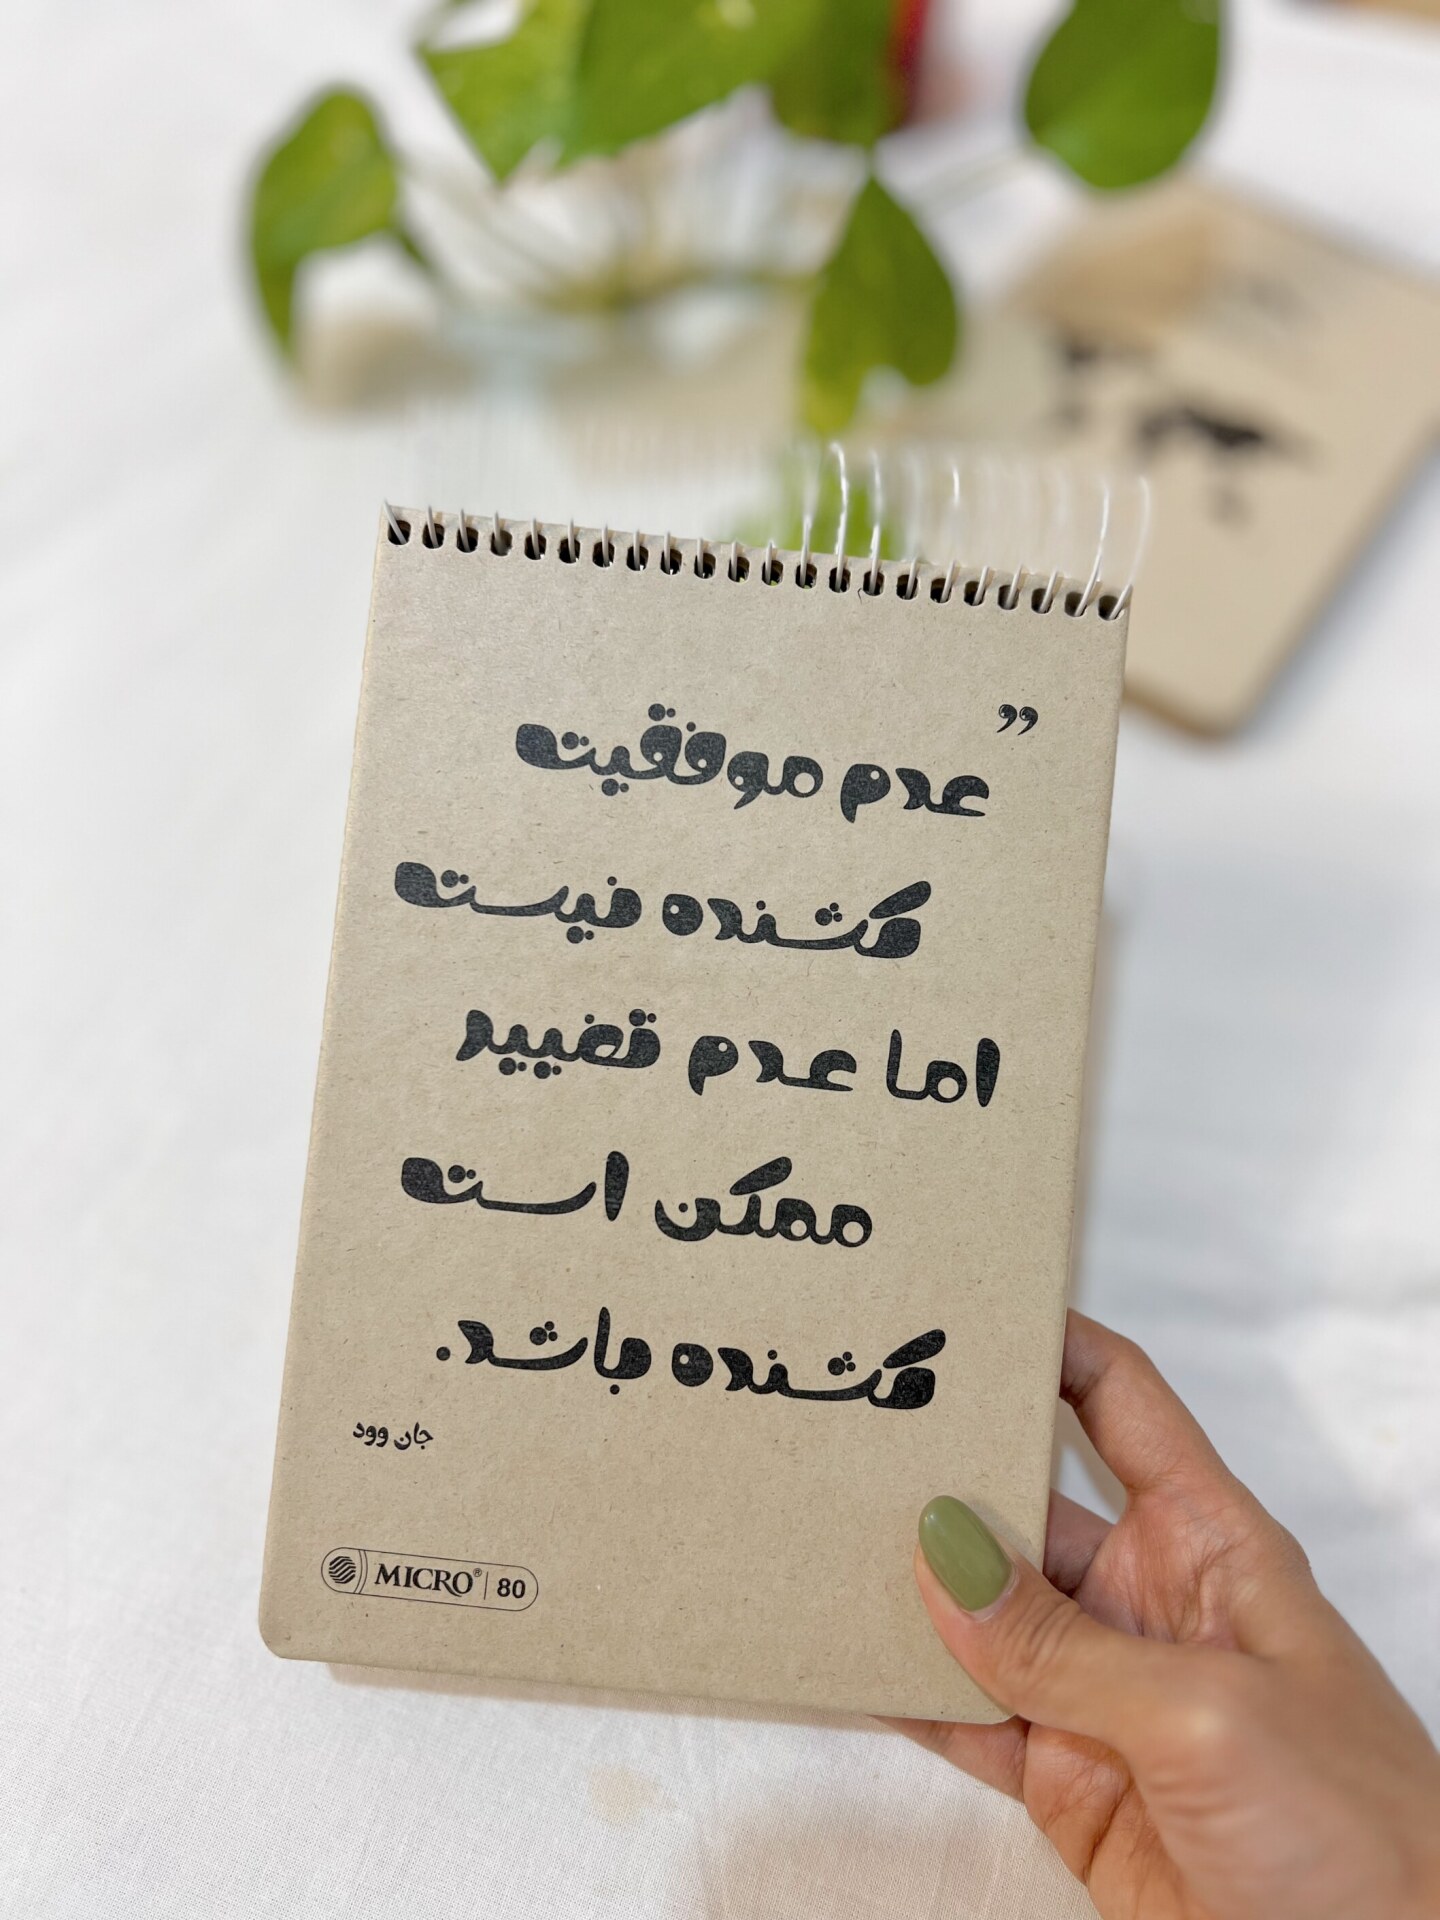 ”
عدم موفقیت
کشنده نیست
اما عدم تغییر
ممکن است
کشنده باشد.
جان وود
MICRO® | 80